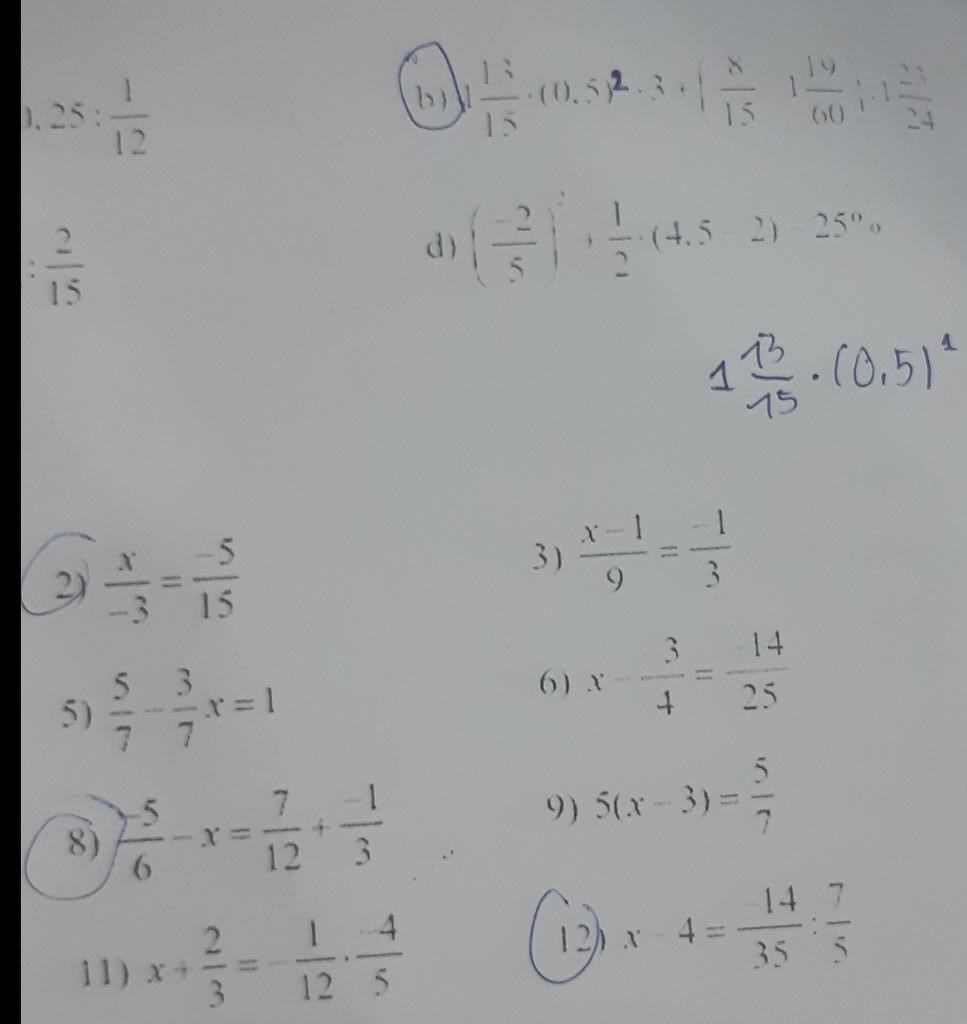 .25 : 1/12
b) 1 13/15 · (0.5)² · 3 + ( 8/15 1 19/60 ) : 1 23/24
: 2/15
d) (-2/5)² + 1/2 · (4.5 - 2) - 25%
1 13/15 · (0.5)¹
2) x/-3 = -5/15
3) x-1/9 = -1/3
5) 5/7 - 3/7 x = 1
6) x - 3/4 = -14/25
8) -5/6 - x = 7/12 + -1/3
9) 5(x - 3) = 5/7
11) x + 2/3 = - 1/12 · -4/5
12) x - 4 = -14/35 : 7/5